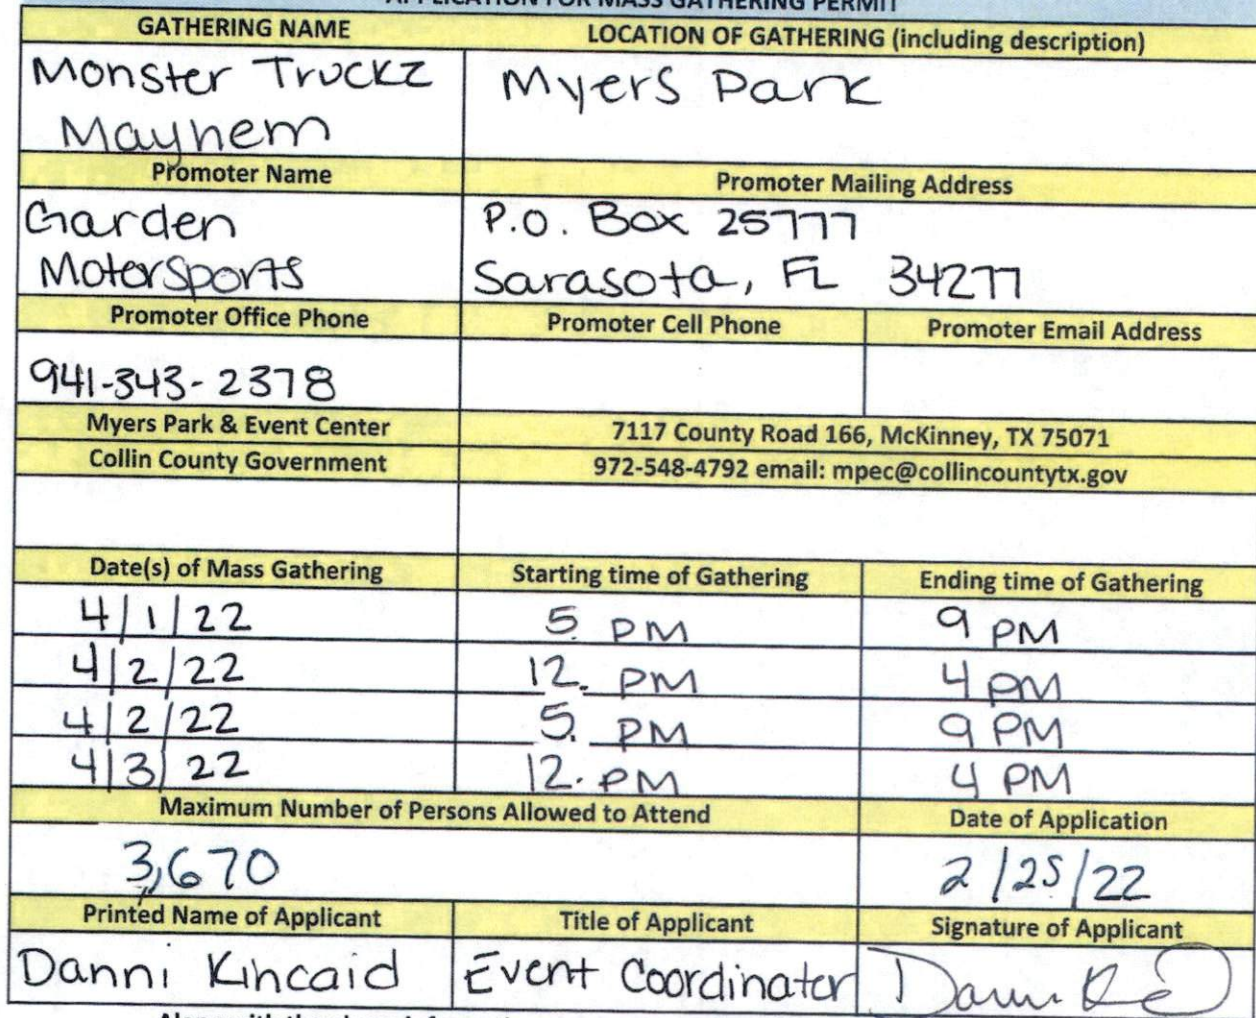 APPLICATION FOR MASS GATHERING PERMIT
GATHERING NAME LOCATION OF GATHERING (including description)
Monster Truckz Myers Park
Mayhem
Promoter Name Promoter Mailing Address
Garden P.O. Box 25777
Motorsports Sarasota, FL 34277
Promoter Office Phone Promoter Cell Phone Promoter Email Address
941-343-2378
Myers Park & Event Center 7117 County Road 166, McKinney, TX 75071
Collin County Government 972-548-4792 email: mpec@collincountytx.gov
Date(s) of Mass Gathering Starting time of Gathering Ending time of Gathering
4/1/22 5 PM 9 PM
4/2/22 12. PM 4 PM
4/2/22 5. PM 9 PM
4/3/22 12. PM 4 PM
Maximum Number of Persons Allowed to Attend Date of Application
3,670 2/25/22
Printed Name of Applicant Title of Applicant Signature of Applicant
Danni Kincaid Event Coordinator